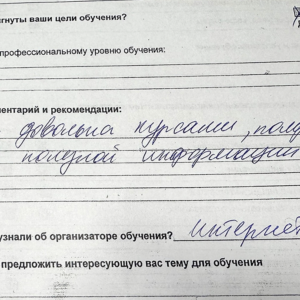 игнуты ваши цели обучения?
профессиональному уровню обучения:
ментарий и рекомендации:
довольна курсами, полу
полезной информации
узнали об организаторе обучения? интернет
предложить интересующую вас тему для обучения